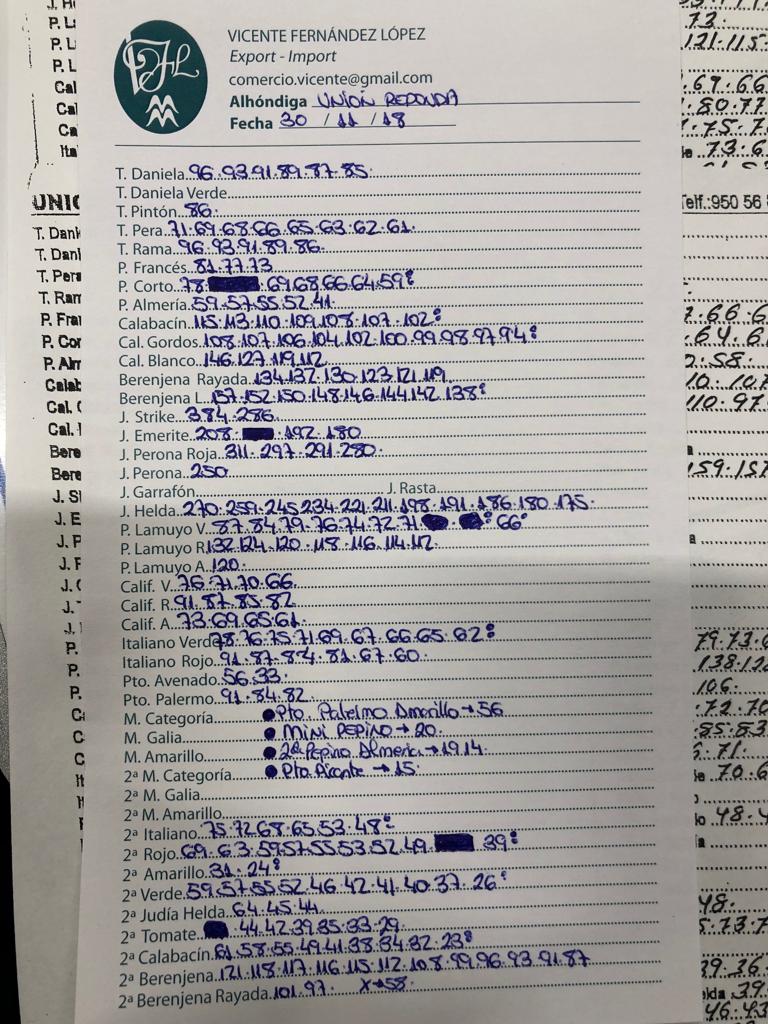 VICENTE FERNÁNDEZ LÓPEZ
Export - Import
comercio.vicente@gmail.com
Alhóndiga UNION REDONDA
Fecha 30 / 11 / 18
T. Daniela 96.93.91.89.87.85.
T. Daniela Verde
T. Pintón 86.
T. Pera 71.69.68.66.65.63.62.61.
T. Rama 96.93.91.89.86.
P. Francés 81.77.73
P. Corto 78. .69.68.66.64.59:
P. Almería 59.57.55.52.41.
Calabacín 115.113.110.109.108.107.102:
Cal. Gordos 108.107.106.104.102.100.99.98.97.94:
Cal. Blanco 146.127.119.112
Berenjena Rayada 134.132.130.123.121.119.
Berenjena L. 157.152.150.148.146.144.142.138:
J. Strike 384.286.
J. Emerite 208. .192.180
J. Perona Roja 311.297.291.280.
J. Perona 250
J. Garrafón J. Rasta
J. Helda 270.259.245.234.221.211.198.191.186.180.175.
P. Lamuyo V. 87.84.79.76.74.72.71 . : 66
P. Lamuyo R. 132.124.120.118.116.114.112.
P. Lamuyo A. 120.
Calif. V. 76.71.70.66.
Calif. R. 91.87.85.82
Calif. A. 73.69.65.61.
Italiano Verde 78.76.75.71.69.67.66.65.62:
Italiano Rojo 91.87.84.81.67.60.
Pto. Avenado 56.33.
Pto. Palermo 91.84.82.
M. Categoría ●Pto. Palermo Amarillo→56
M. Galia ●MINI PEPINO→20.
M. Amarillo ●2ª Pepino Almería→19.14.
2ª M. Categoría ●Pto Picante →15.
2ª M. Galia
2ª M. Amarillo
2ª Italiano 75.72.68.65.53.48:
2ª Rojo 69.63.59.57.55.53.52.49. 39:
2ª Amarillo 31.24:
2ª Verde 59.57.55.52.46.42.41.40.37.26:
2ª Judía Helda 64.45.44.
2ª Tomate .44.42.39.35.33.29.
2ª Calabacín 61.58.55.49.41.38.34.32.23:
2ª Berenjena 121.118.117.116.115.112.108.99.96.93.91.87
2ª Berenjena Rayada 101.97. X→58.